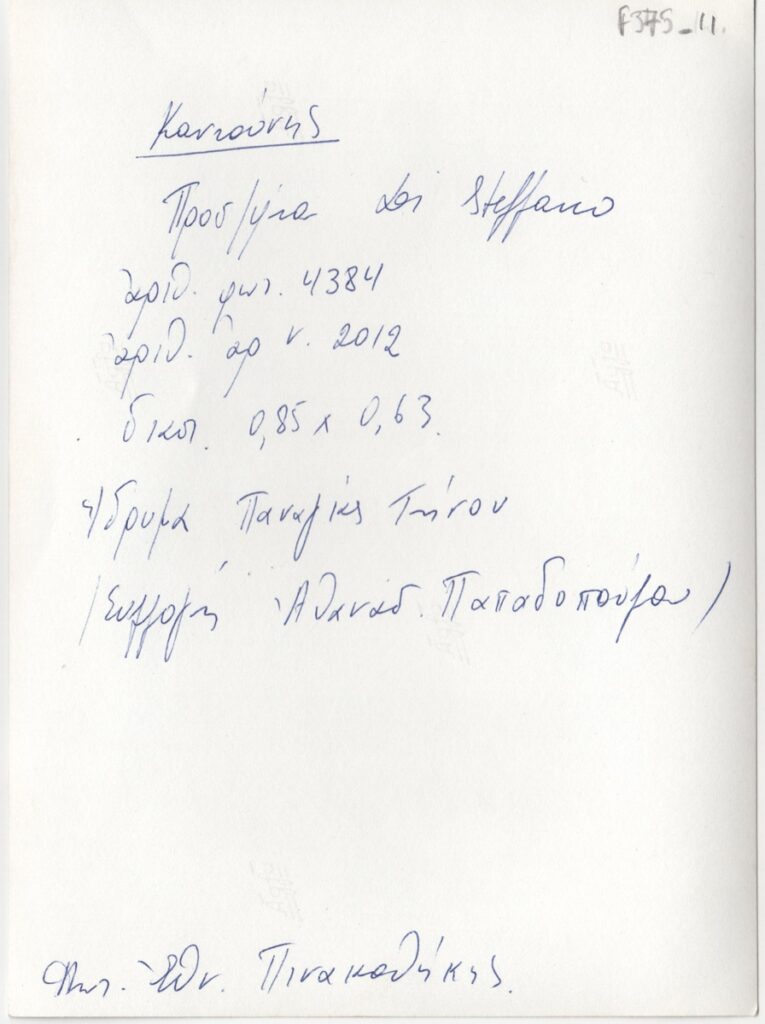 F375-11.
Καντούνης
Προσ/φία Steffano
ἀριθ. φωτ. 4384
ἀριθ. ἀρν. 2012
διαστ. 0,85 x 0,63.
Ἵδρυμα Παναγίας Τήνου
(Συλλογή Ἀθανασ. Παπαδοπούλου)
Φωτ. Ἐθν. Πινακοθήκης.